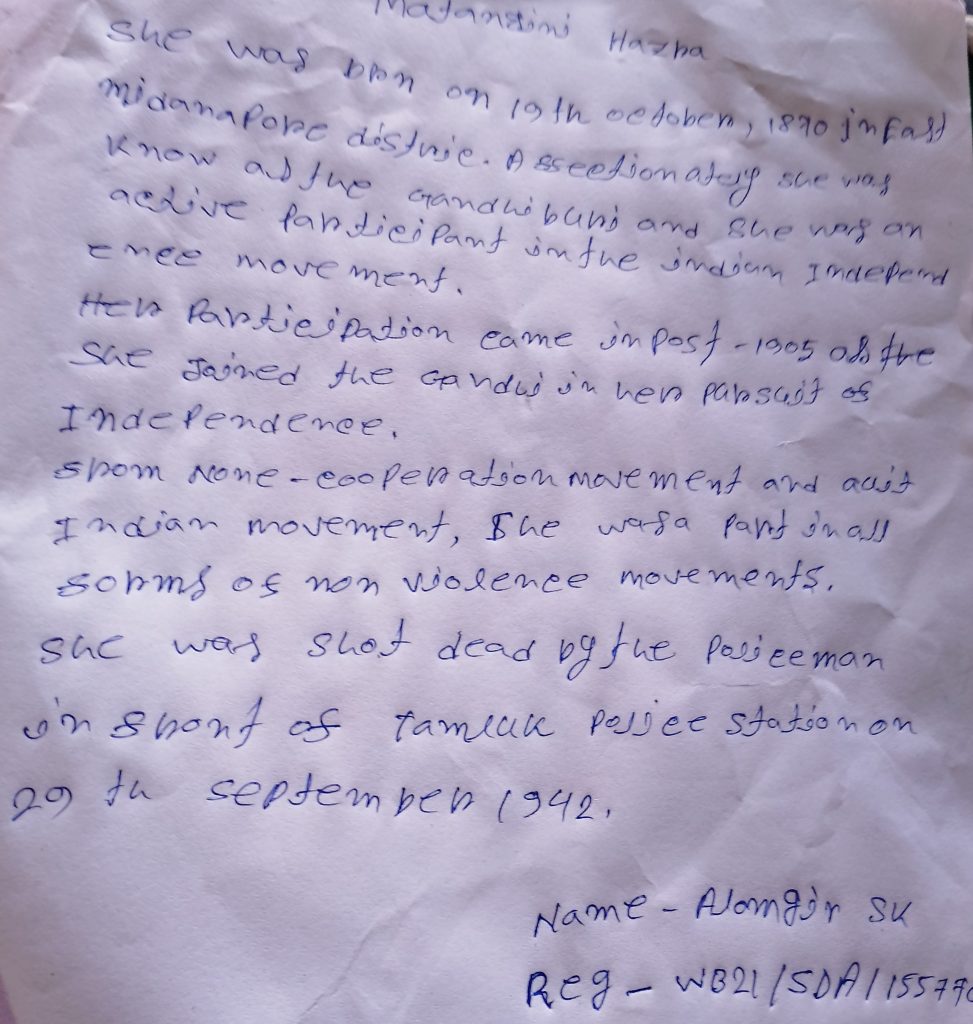 Matangini Hazra
She was born on 19th october, 1870 in East
midanapore distric. Affectionately she was
know as the Gandhiburi and she was an
active participant in the indian Independ
ence movement.
Her Participation came in post - 1905 as the
She Joined the Gandhi in her pursuit of
Independence.
from None - cooperation movement and quit
Indian movement, She was a part in all
forms of non violence movements.
She was shot dead by the policeman
in front of Tamluk police station on
29 th september 1942.
Name - Alamgir SK
Reg - WB21/SDA/155770